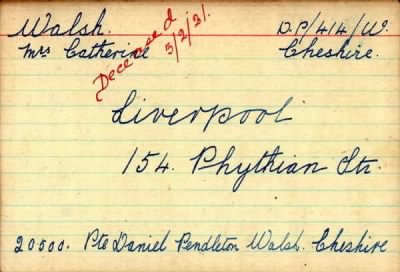 Walsh. D.P/414/W.
Mrs Catherine Cheshire.
Deceased
3/2/21.
Liverpool
154. Phythian Str.
20500. Pte Daniel Pendleton Walsh. Cheshire